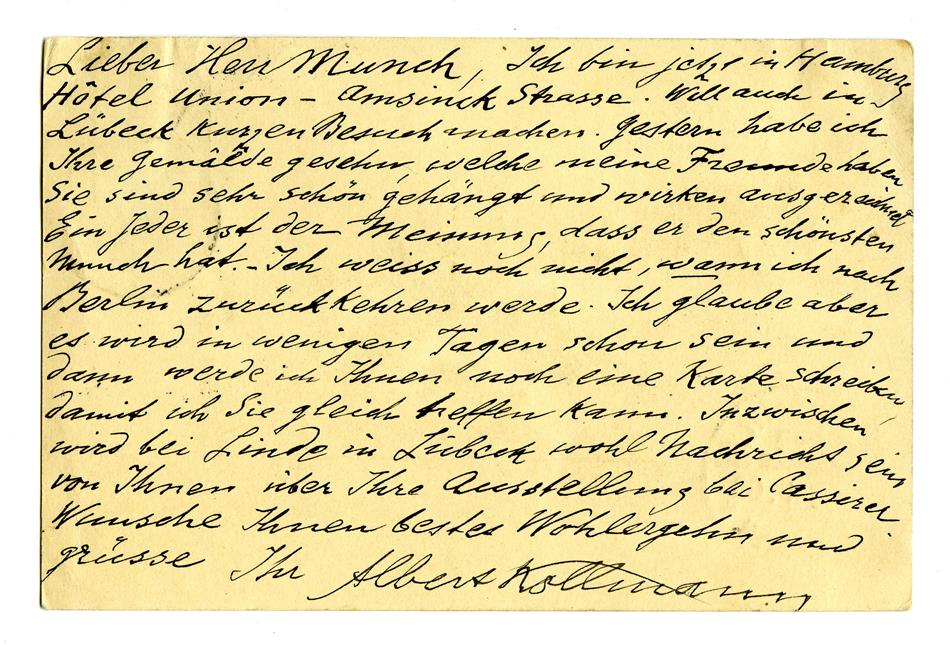 Lieber Herr Munch, Ich bin jetzt in Hamburg
Hôtel Union – Amsinck Strasse. Will auch in
Lübeck kurzen Besuch machen. Gestern habe ich
Ihre Gemälde gesehn, welche meine Freunde haben
Sie sind sehr schön gehängt und wirken ausgezeichnet
Ein Jeder ist der Meinung, dass er den schönsten
Munch hat. – Ich weiss noch nicht, wann ich nach
Berlin zurückkehren werde. Ich glaube aber
es wird in wenigen Tagen schon sein und
dann werde ich Ihnen noch eine Karte schreiben,
damit ich Sie gleich treffen kann. Inzwischen
wird bei Linde in Lübeck wohl Nachricht sein
von Ihnen über Ihre Ausstellung bei Cassirer
Wünsche Ihnen bestes Wohlergehn und
grüsse Ihr Albert Kollmann